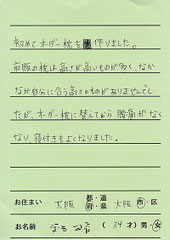 初めてオーダー枕を作りました。
市販の枕は高さが高いものが多く、なか
なか自分に合う高さがありませんでし
たが、オーダー枕に替えてから腰痛がなく
なり、寝付きもよくなりました。
お住まい 大阪 都・道 府・県 大阪 市・区
お名前 (34才) 男・女